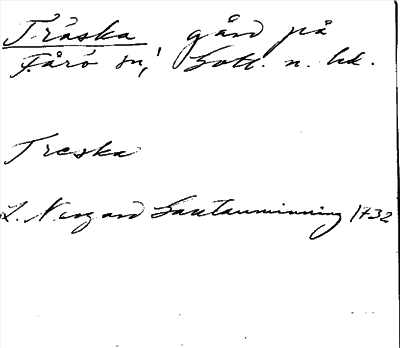 Träska gård på
Fårö sn, Gotl. n. hd.
Treska
L. Nergard Gautauminning 1732